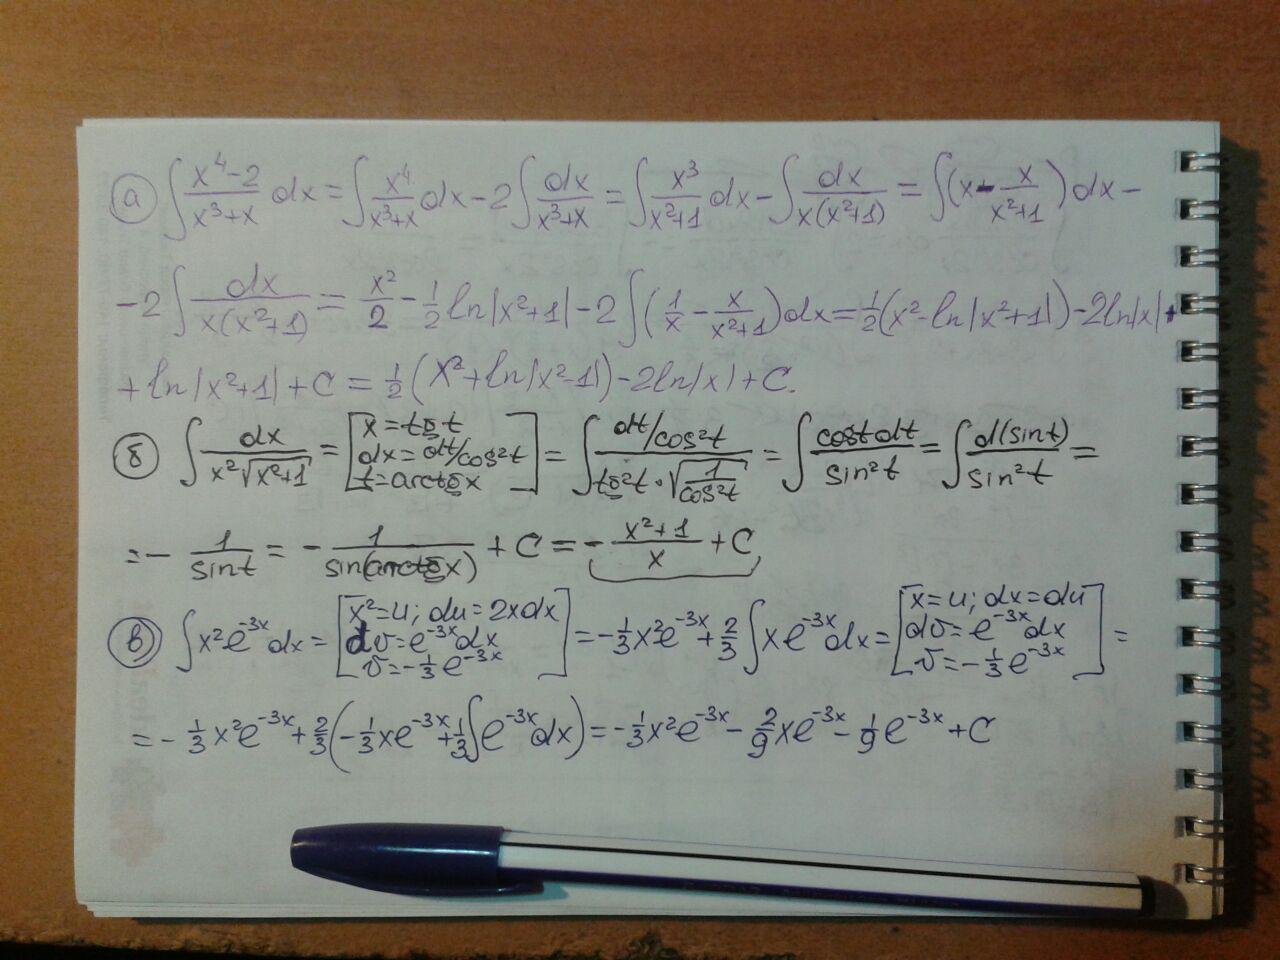 а) ∫ (x⁴-2)/(x³+x) dx = ∫ x⁴/(x³+x) dx - 2∫ dx/(x³+x) = ∫ x³/(x²+1) dx - ∫ dx/(x(x²+1)) = ∫(x - x/(x²+1))dx -
-2∫ dx/(x(x²+1)) = x²/2 - 1/2 ln|x²+1| - 2∫(1/x - x/(x²+1))dx = 1/2(x²-ln|x²+1|) - 2ln|x| +
+ ln|x²+1| + C = 1/2(x²+ln|x²-1|) - 2ln|x| + C.
б) ∫ dx/(x²√(x²+1)) = [x = tg t; dx = dt/cos²t; t = arctg x] = ∫ (dt/cos²t)/(tg²t · √(1/cos²t)) = ∫ cost dt/sin²t = ∫ d(sint)/sin²t =
= - 1/sint = - 1/sin(arctg x) + C = - (x²+1)/x + C
в) ∫ x²e⁻³ˣ dx = [x²=u; du=2xdx; dv=e⁻³ˣdx; v=-1/3 e⁻³ˣ] = -1/3 x²e⁻³ˣ + 2/3 ∫ xe⁻³ˣ dx = [x=u; dx=du; dv=e⁻³ˣ dx; v=-1/3 e⁻³ˣ] =
= - 1/3 x²e⁻³ˣ + 2/3(-1/3 xe⁻³ˣ + 1/3 ∫ e⁻³ˣ dx) = -1/3 x²e⁻³ˣ - 2/9 xe⁻³ˣ - 1/9 e⁻³ˣ + C